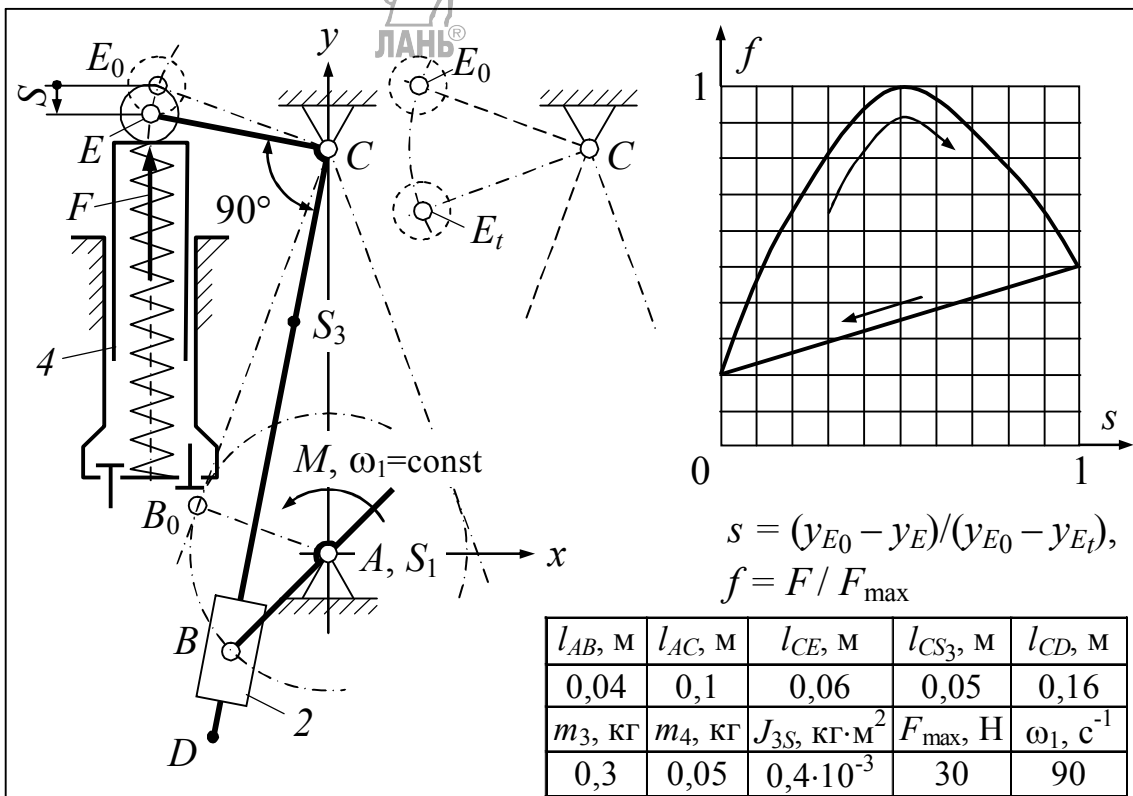 ЛАНЬ®
y
E₀
s
E
C
F
90°
S₃
4
M, ω₁=const
B₀
A, S₁
x
B
2
D
E₀
C
Eₜ
f
1
s
0
1
s = (y_E₀ – y_E)/(y_E₀ – y_Eₜ),
f = F / F_max
l_AB, м l_AC, м l_CE, м l_CS₃, м l_CD, м
0,04 0,1 0,06 0,05 0,16
m₃, кг m₄, кг J₃S, кг·м² F_max, Н ω₁, с⁻¹
0,3 0,05 0,4·10⁻³ 30 90